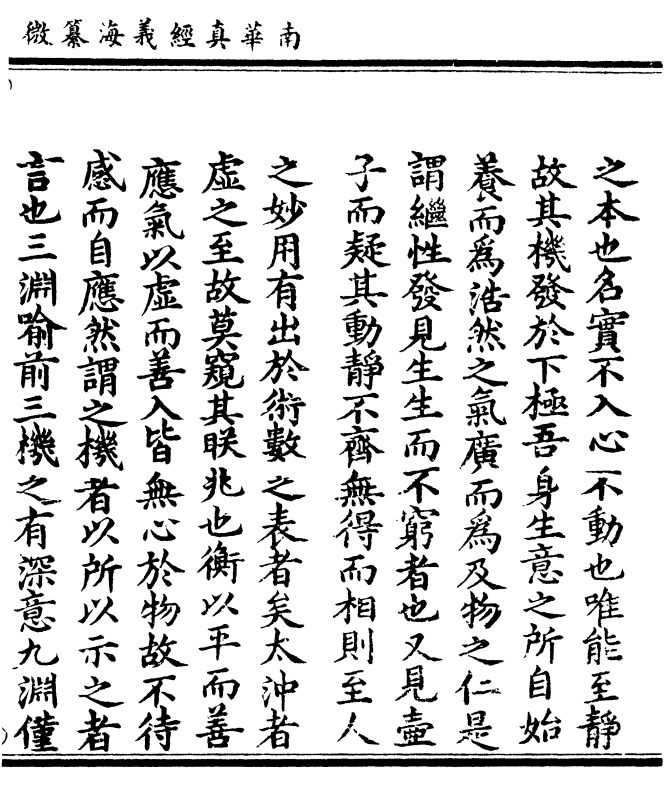 南華真經義海纂微
之本也名實不入心不動也唯能至靜
故其機發於下極吾身生意之所自始
養而爲浩然之氣廣而爲及物之仁是
謂繼性發見生生而不窮者也又見壺
子而疑其動靜不齊無得而相則至人
之妙用有出於術數之表者矣太沖者
虛之至故莫窺其眹兆也衡以平而善
應氣以虛而善入皆無心於物故不待
感而自應然謂之機者以所以示之者
言也三淵喻前三機之有深意九淵僅